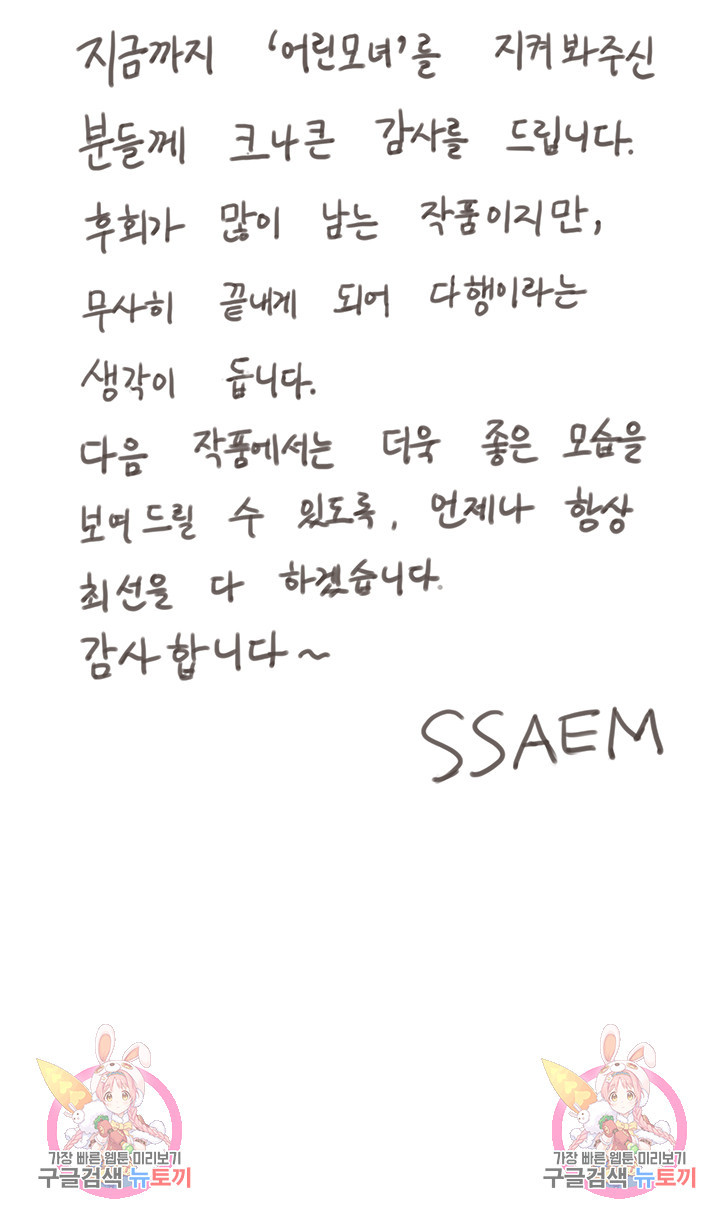 지금까지 '어린모녀'를 지켜봐주신
분들께 크나큰 감사를 드립니다.
후회가 많이 남는 작품이지만,
무사히 끝내게 되어 다행이라는
생각이 듭니다.
다음 작품에서는 더욱 좋은 모습을
보여드릴 수 있도록, 언제나 항상
최선을 다 하겠습니다.
감사합니다~
SSAEM
가장 빠른 웹툰 미리보기
구글검색 뉴토끼
가장 빠른 웹툰 미리보기
구글검색 뉴토끼